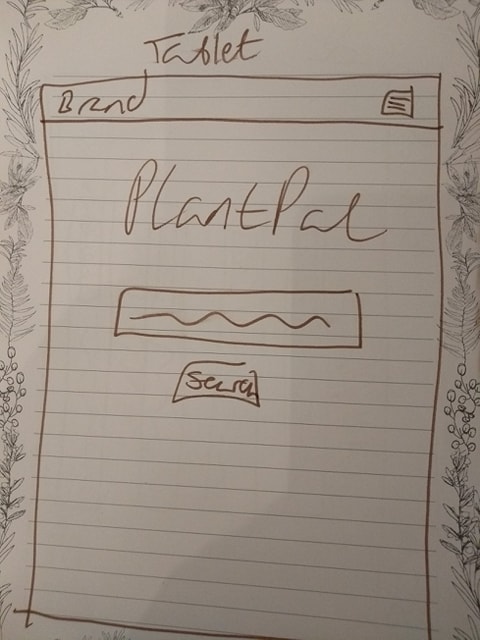 Tablet
Brand
PlantPal
Search